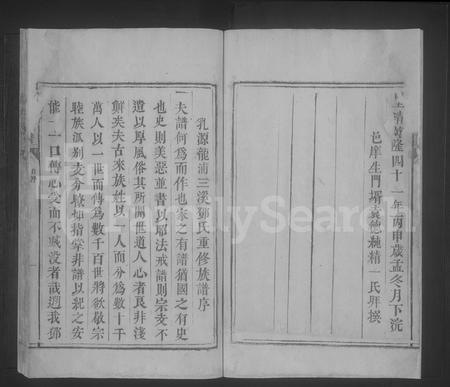 皇清乾隆四十一年丙申歲孟冬月下浣
邑庠生門壻袁德純精一氏拜撰
乳源龍浦三溪鄧氏重修族譜序
夫譜何為而作也家之有譜猶國之有史
也史則美惡並書以昭法戒譜則宗支不
遺以厚風俗其所關世道人心者良非淺
鮮矣夫古來族姓以一人而分為數十千
萬人以一世而傳為數千百世將欲敬宗
睦族派別支分較如指掌非譜以紀之安
能一口傳心受而不滅沒者哉迺我鄧
FamilySearch